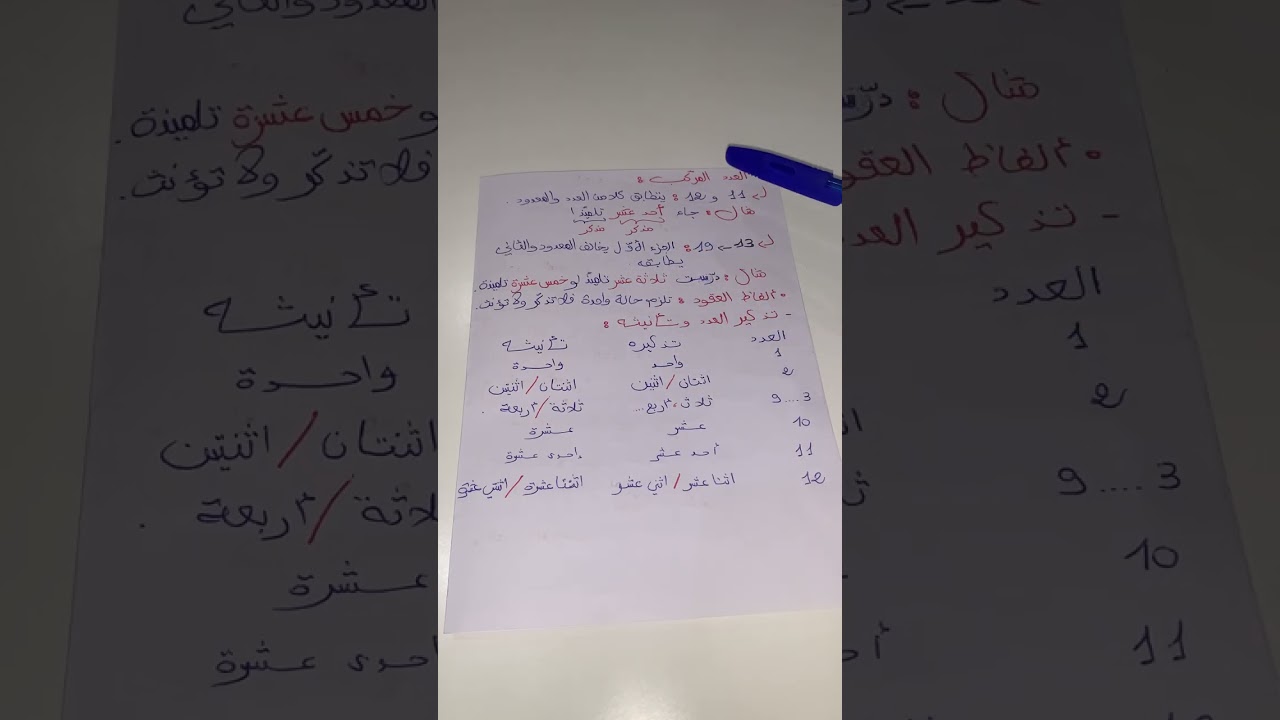 العدد المركب :
↳ 11 و 12 : يتطابق كلا من العدد والمعدود .
مثال : جاء أحد عشر تلميذا
مذكر مذكر
↳ 13 ← 19 : الجزء الأول يخالف المعدود والثاني
يطابقه
مثال : درّست ثلاثة عشر تلميذًا و خمس عشرة تلميذة .
• ألفاظ العقود : تلزم حالة واحدة فلا تذكّر ولا تؤنث .
- تذكير العدد وتأنيثه :
العدد تذكيره تأنيثه
1 واحد واحدة
2 اثنان / اثنين اثنتان / اثنتين
3 .... 9 ثلاث، أربع... ثلاثة / أربعة .
10 عشر عشرة
11 أحد عشر إحدى عشرة
12 اثنا عشر / اثني عشر اثنتا عشرة / اثنتي عشرة